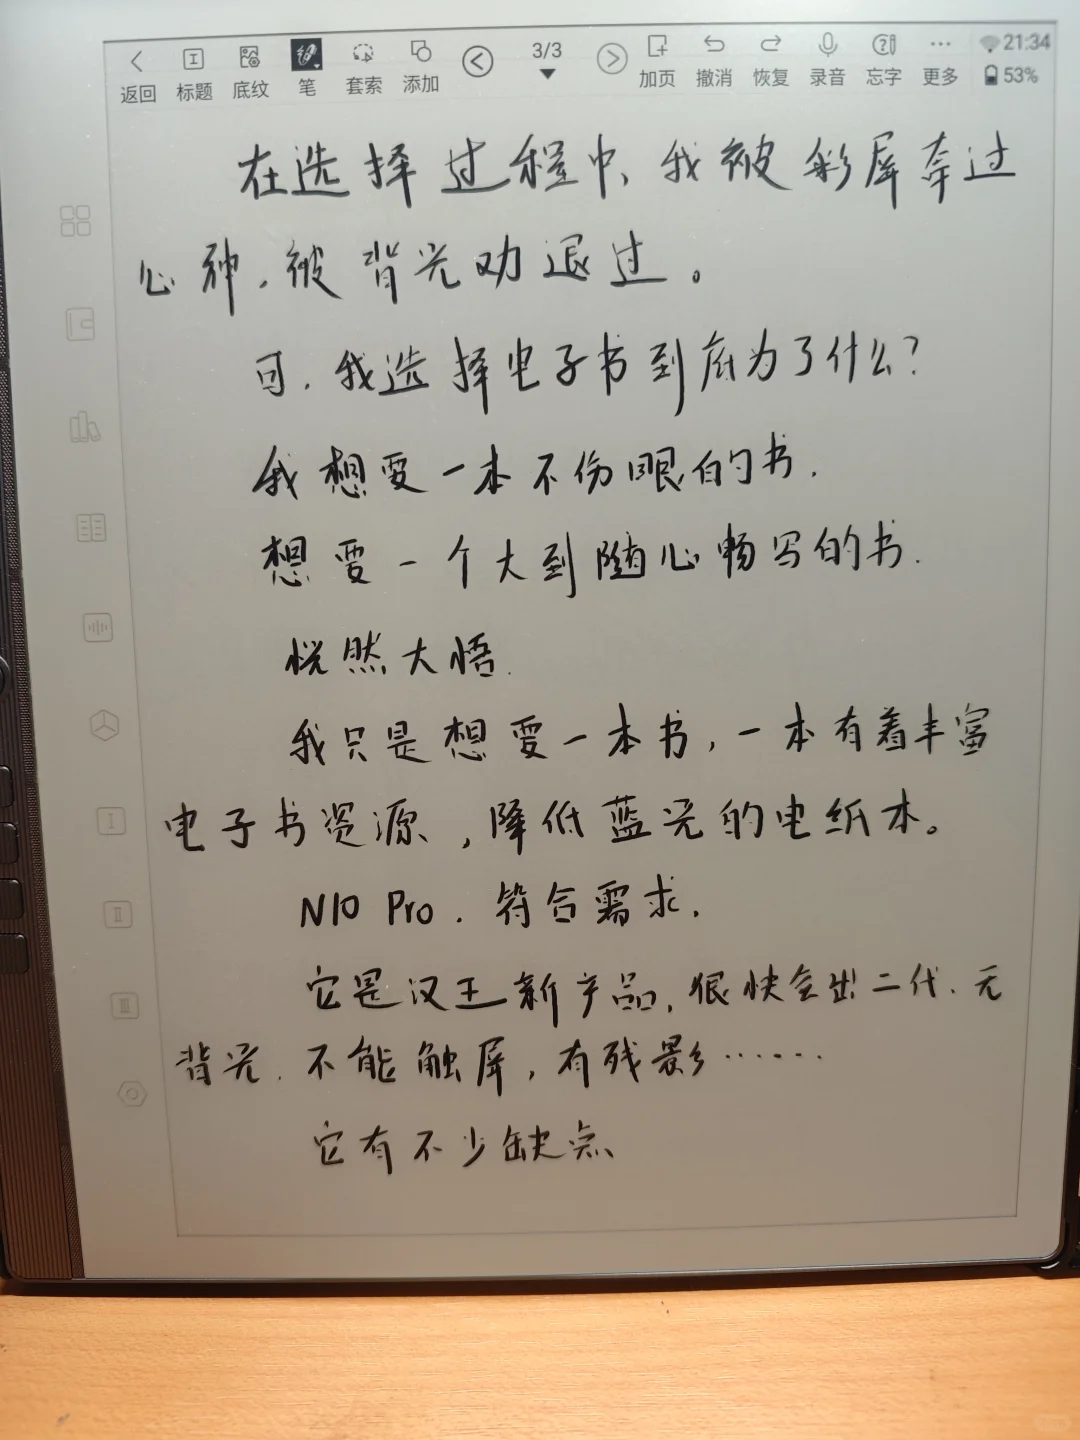 返回 标题 底纹 笔 套索 添加 3/3 加页 撤消 恢复 录音 忘字 更多 21:34 53%
在选择过程中,我被彩屏牵过
心神,被背光劝退过。
可,我选择电子书到底为了什么?
我想要一本不伤眼的书.
想要一个大到随心畅写的书.
恍然大悟.
我只是想要一本书,一本有着丰富
电子书资源,降低蓝光的电纸本。
N10 Pro. 符合需求.
它是汉王新产品,很快会出二代、无
背光.不能触屏,有残影……
它有不少缺点、